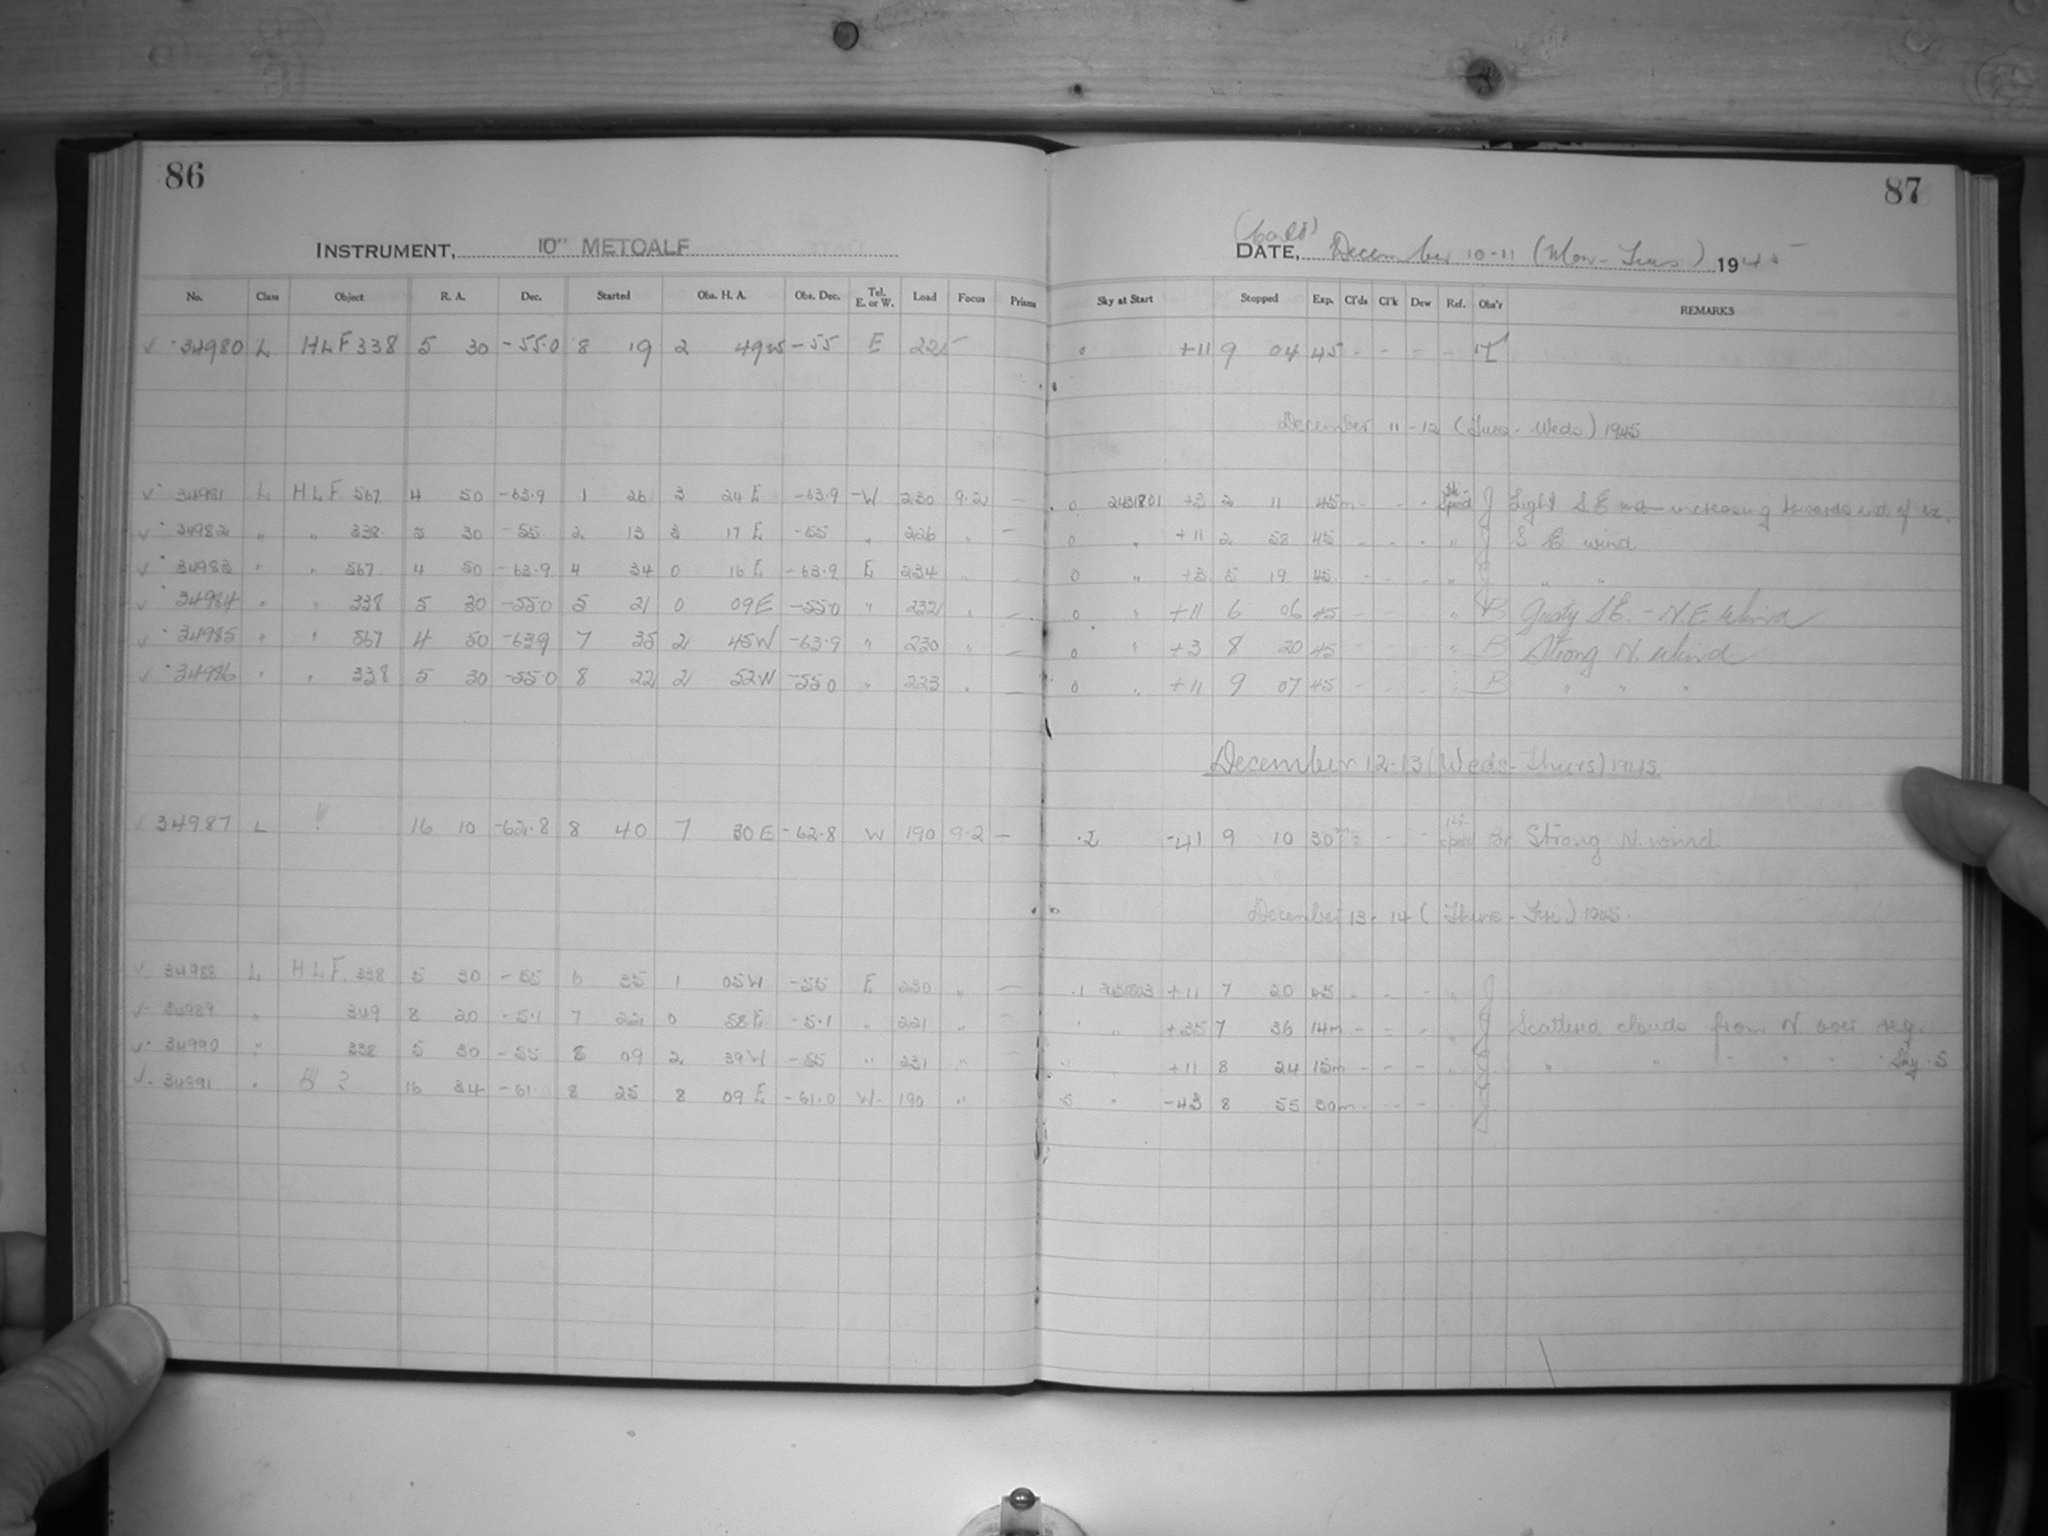 86
INSTRUMENT, 10" METCALF
No. Class Object R. A. Dec. Started Obs. H. A. Obs. Dec. Tel. E. or W. Load Focus Prisms
34980 L HLF 338 5 30 -55.0 8 19 2 49W -55 E 221 -
34981 L HLF 567 4 50 -63.9 1 26 3 24 E -63.9 W 230 9.2 -
34982 " " 338 5 30 -55 2 13 3 17 E -55 " 226 " -
34983 " " 567 4 50 -63.9 4 34 0 16 E -63.9 E 234 " -
34984 " " 338 5 30 -55.0 5 21 0 09E -55.0 " 232 " -
34985 " " 567 4 50 -63.9 7 35 2 45W -63.9 " 230 " -
34986 " " 338 5 30 -55.0 8 22 2 52W -55.0 " 223 " -
34987 L 16 10 -62.8 8 40 7 30 E -62.8 W 190 9.2 -
34988 L HLF 338 5 30 -55 6 35 1 05W -55 E 230 " -
34989 " 349 8 20 -5.1 7 22 0 58E -5.1 " 221 " -
34990 " 338 5 30 -55 8 09 2 39W -55 " 231 " -
34991 " ? 16 34 -61.0 8 25 8 09 E -61.0 W 190 "
87
DATE, December 10-11 (Mon-Tues) 1945
Sky at Start Stopped Exp. Cl'ds Cl'k Dew Ref. Obs'r REMARKS
0 +11 9 04 45 - - - -
December 11-12 (Tues-Weds) 1945
0 2431801 +3 2 11 45m - - - J Light S.E. increasing towards end of ex.
0 " +11 2 58 45 - - - " J S E wind
0 " +3 5 19 45 - - - " J " "
0 " +11 6 06 45 - - - " B Gusty S.E. - N.E. Wind
0 " +3 8 20 45 - - - " B Strong N. Wind
0 " +11 9 07 45 - - - " B " " "
December 12-13 (Weds-Thurs) 1945.
.2 -41 9 10 30m - - - Br Strong N. wind
December 13-14 (Thurs-Fri) 1945.
.1 +11 7 20 45 - - - " J
" " +35 7 36 14m - - - " J Scattered clouds from N. over reg.
" +11 8 24 15m - - - " J " " " " " Sky .5
.5 " -43 8 55 30m - - - J